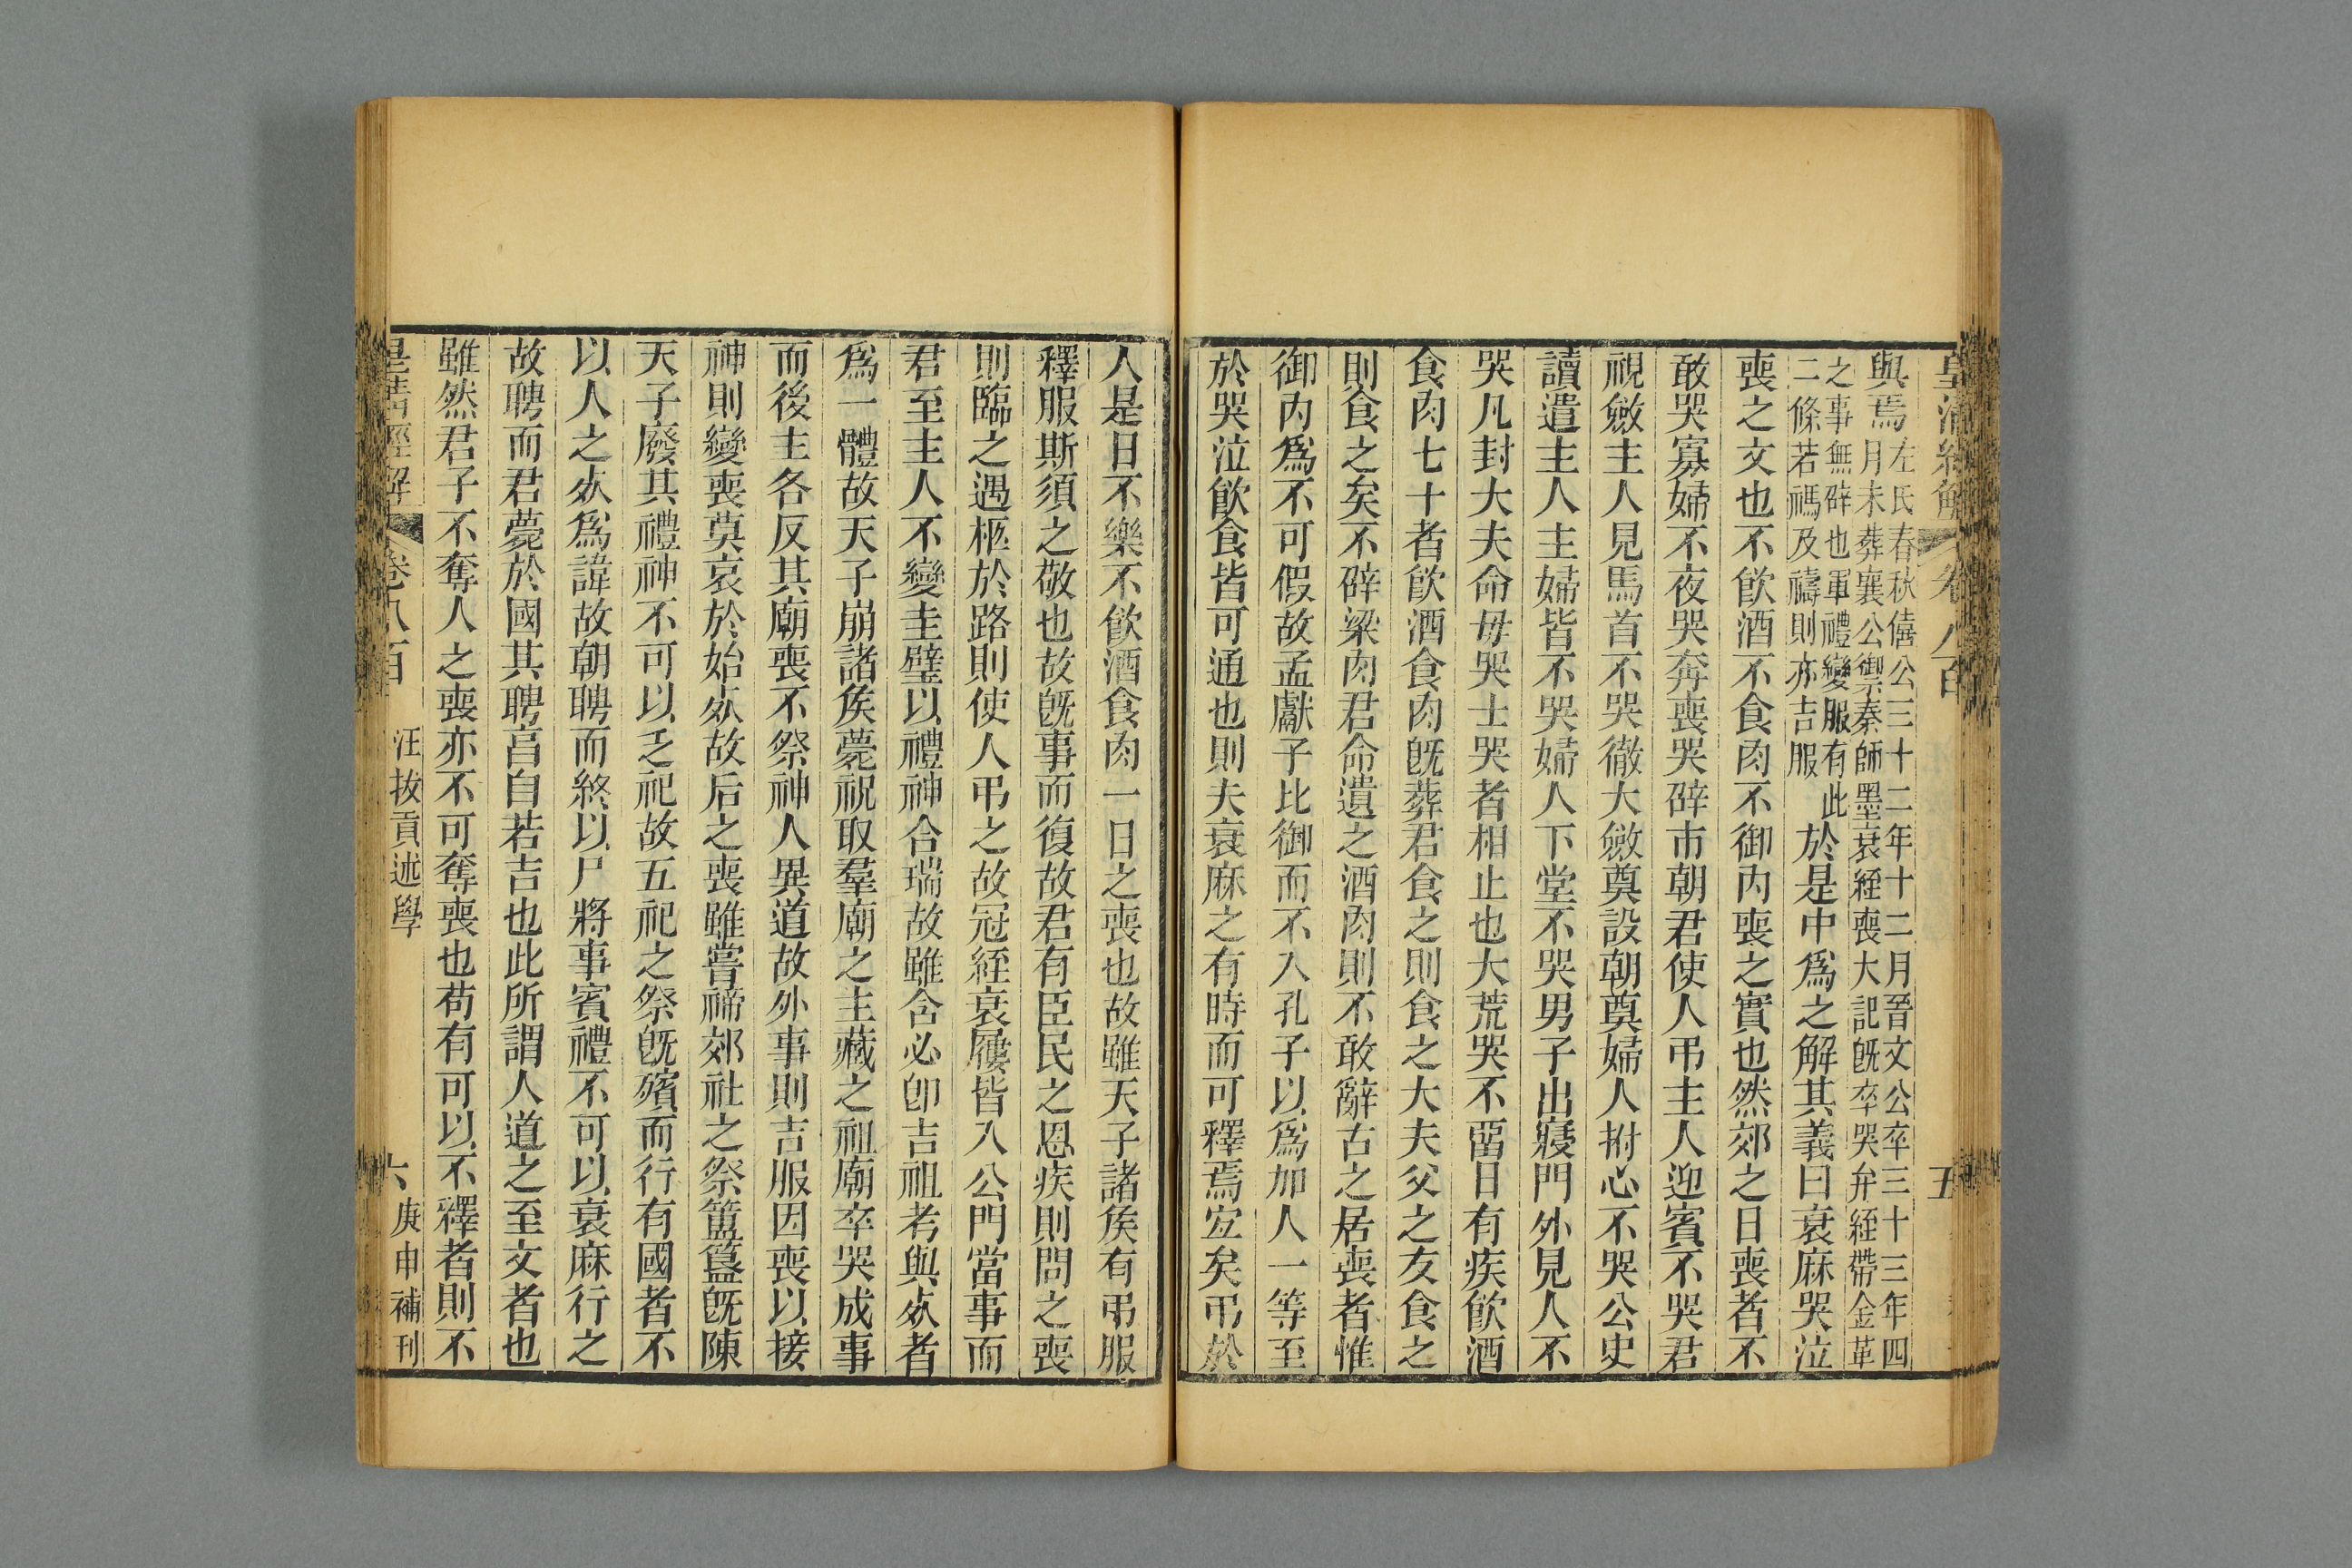 皇清經解 卷八百 五
與焉左氏春秋僖公三十二年十二月晉文公卒三十三年四
月未葬襄公禦秦師墨衰絰喪大記旣卒哭弁絰帶金革
之事無辟也軍禮變服有此
二條若禡及禱則亦吉服於是中爲之解其義曰衰麻哭泣
喪之文也不飮酒不食肉不御內喪之實也然郊之日喪者不
敢哭寡婦不夜哭奔喪哭辟市朝君使人弔主人迎賓不哭君
視斂主人見馬首不哭徹大斂奠設朝奠婦人拊心不哭公史
讀遣主人主婦皆不哭婦人下堂不哭男子出寢門外見人不
哭凡封大夫命毋哭士哭者相止也大荒哭不畱日有疾飮酒
食肉七十者飮酒食肉旣葬君食之則食之大夫父之友食之
則食之矣不辟粱肉君命遺之酒肉則不敢辭古之居喪者惟
御內爲不可假故孟獻子比御而不入孔子以爲加人一等至
於哭泣飮食皆可通也則夫衰麻之有時而可釋焉宐矣弔於
人是日不樂不飮酒食肉一日之喪也故雖天子諸矦有弔服
釋服斯須之敬也故旣事而復故君有臣民之恩疾則問之喪
則臨之遇柩於路則使人弔之故冠絰衰屨皆入公門當事而
君至主人不變圭璧以禮神合瑞故雖含必卽吉祖考與㱁者
爲一體故天子崩諸矦薨祝取羣廟之主藏之祖廟卒哭成事
而後主各反其廟喪不祭神人異道故外事則吉服因喪以接
神則變喪奠哀於始㱁故后之喪雖嘗禘郊社之祭簠簋旣陳
天子廢其禮神不可以乏祀故五祀之祭旣殯而行有國者不
以人之㱁爲諱故朝聘而終以尸將事賓禮不可以衰麻行之
故聘而君薨於國其聘亯自若吉也此所謂人道之至文者也
雖然君子不奪人之喪亦不可奪喪也苟有可以不釋者則不
皇清經解 卷八百 汪拔貢述學 六 庚申補刊